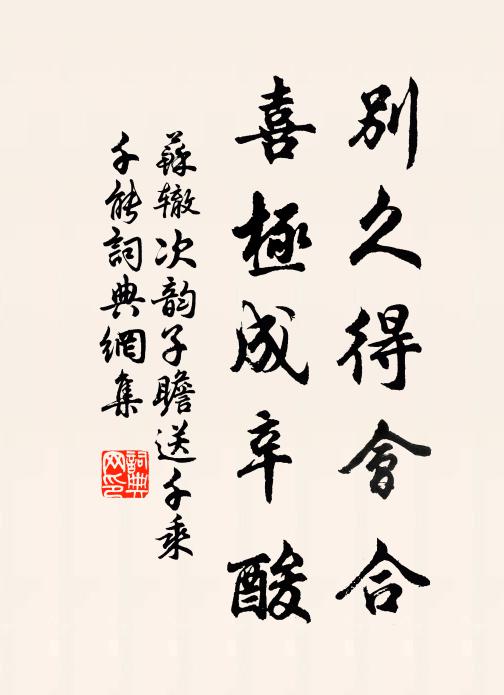 別久得會合
喜極成辛酸
蘇辙次韵子瞻送千乘
千能詞典網集
詞典网印